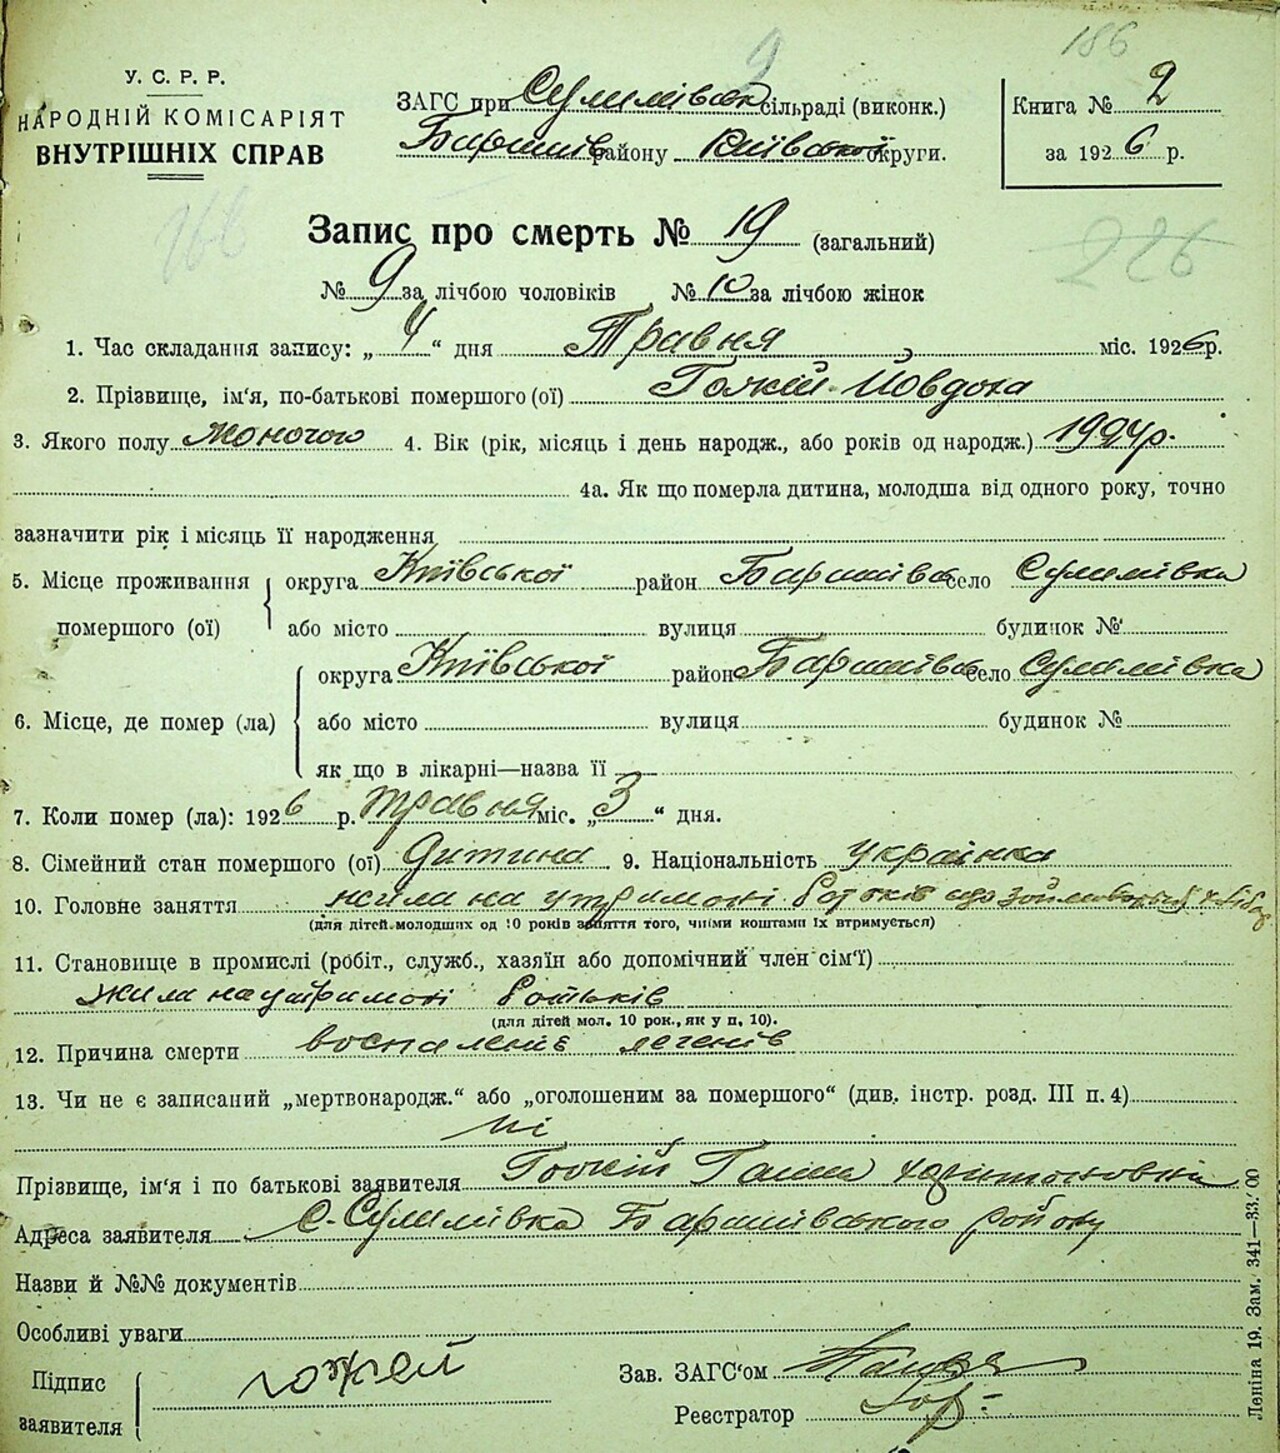 186
У. С. Р. Р.
НАРОДНІЙ КОМІСАРІЯТ
ВНУТРІШНІХ СПРАВ
ЗАГС при Сулимівск сільраді (виконк.)
Баришів району Київської округи.
Книга № 2
за 1926 р.
Запис про смерть № 19 (загальний)
226
№ 9 за лічбою чоловіків № 10 за лічбою жінок
1. Час складання запису: „ 4 “ дня Травня міс. 1926 р.
2. Прізвище, ім‘я, по-батькові помершого (ої) Йовдоха
3. Якого полу жоночого 4. Вік (рік, місяць і день народж., або років од народж.) 1924р.
4а. Як що померла дитина, молодша від одного року, точно
зазначити рік і місяць її народження
5. Місце проживання округа Київської район Баришівс село Сулимівка
помершого (ої) або місто вулиця будинок №
округа Київської район Баришівс село Сулимівка
6. Місце, де помер (ла) або місто вулиця будинок №
як що в лікарні—назва її
7. Коли помер (ла): 1926 р. травня міс. „ 3 “ дня.
8. Сімейний стан помершого (ої) Дитина 9. Національність українка
10. Головне заняття жила на утримоні ботьків що
(для дітей молодших од 10 років заняття того, чиїми коштами їх втримується)
11. Становище в промислі (робіт., служб., хазяїн або допомічний член сім‘ї)
жила на утримоні ботьків
(для дітей мол. 10 рок., як у п. 10).
12. Причина смерти воспаленіє легенів
13. Чи не є записаний „мертвонародж.“ або „оголошеним за помершого“ (див. інстр. розд. III п. 4)
ні
Прізвище, ім‘я і по батькові заявителя Ганна Харитоновна
Адреса заявителя С. Сулимівка Баришівського району
Назви й №№ документів
Особливі уваги
Підпис
заявителя
Зав. ЗАГС‘ом
Реєстратор
Леніна 19. Зам. 341—33.